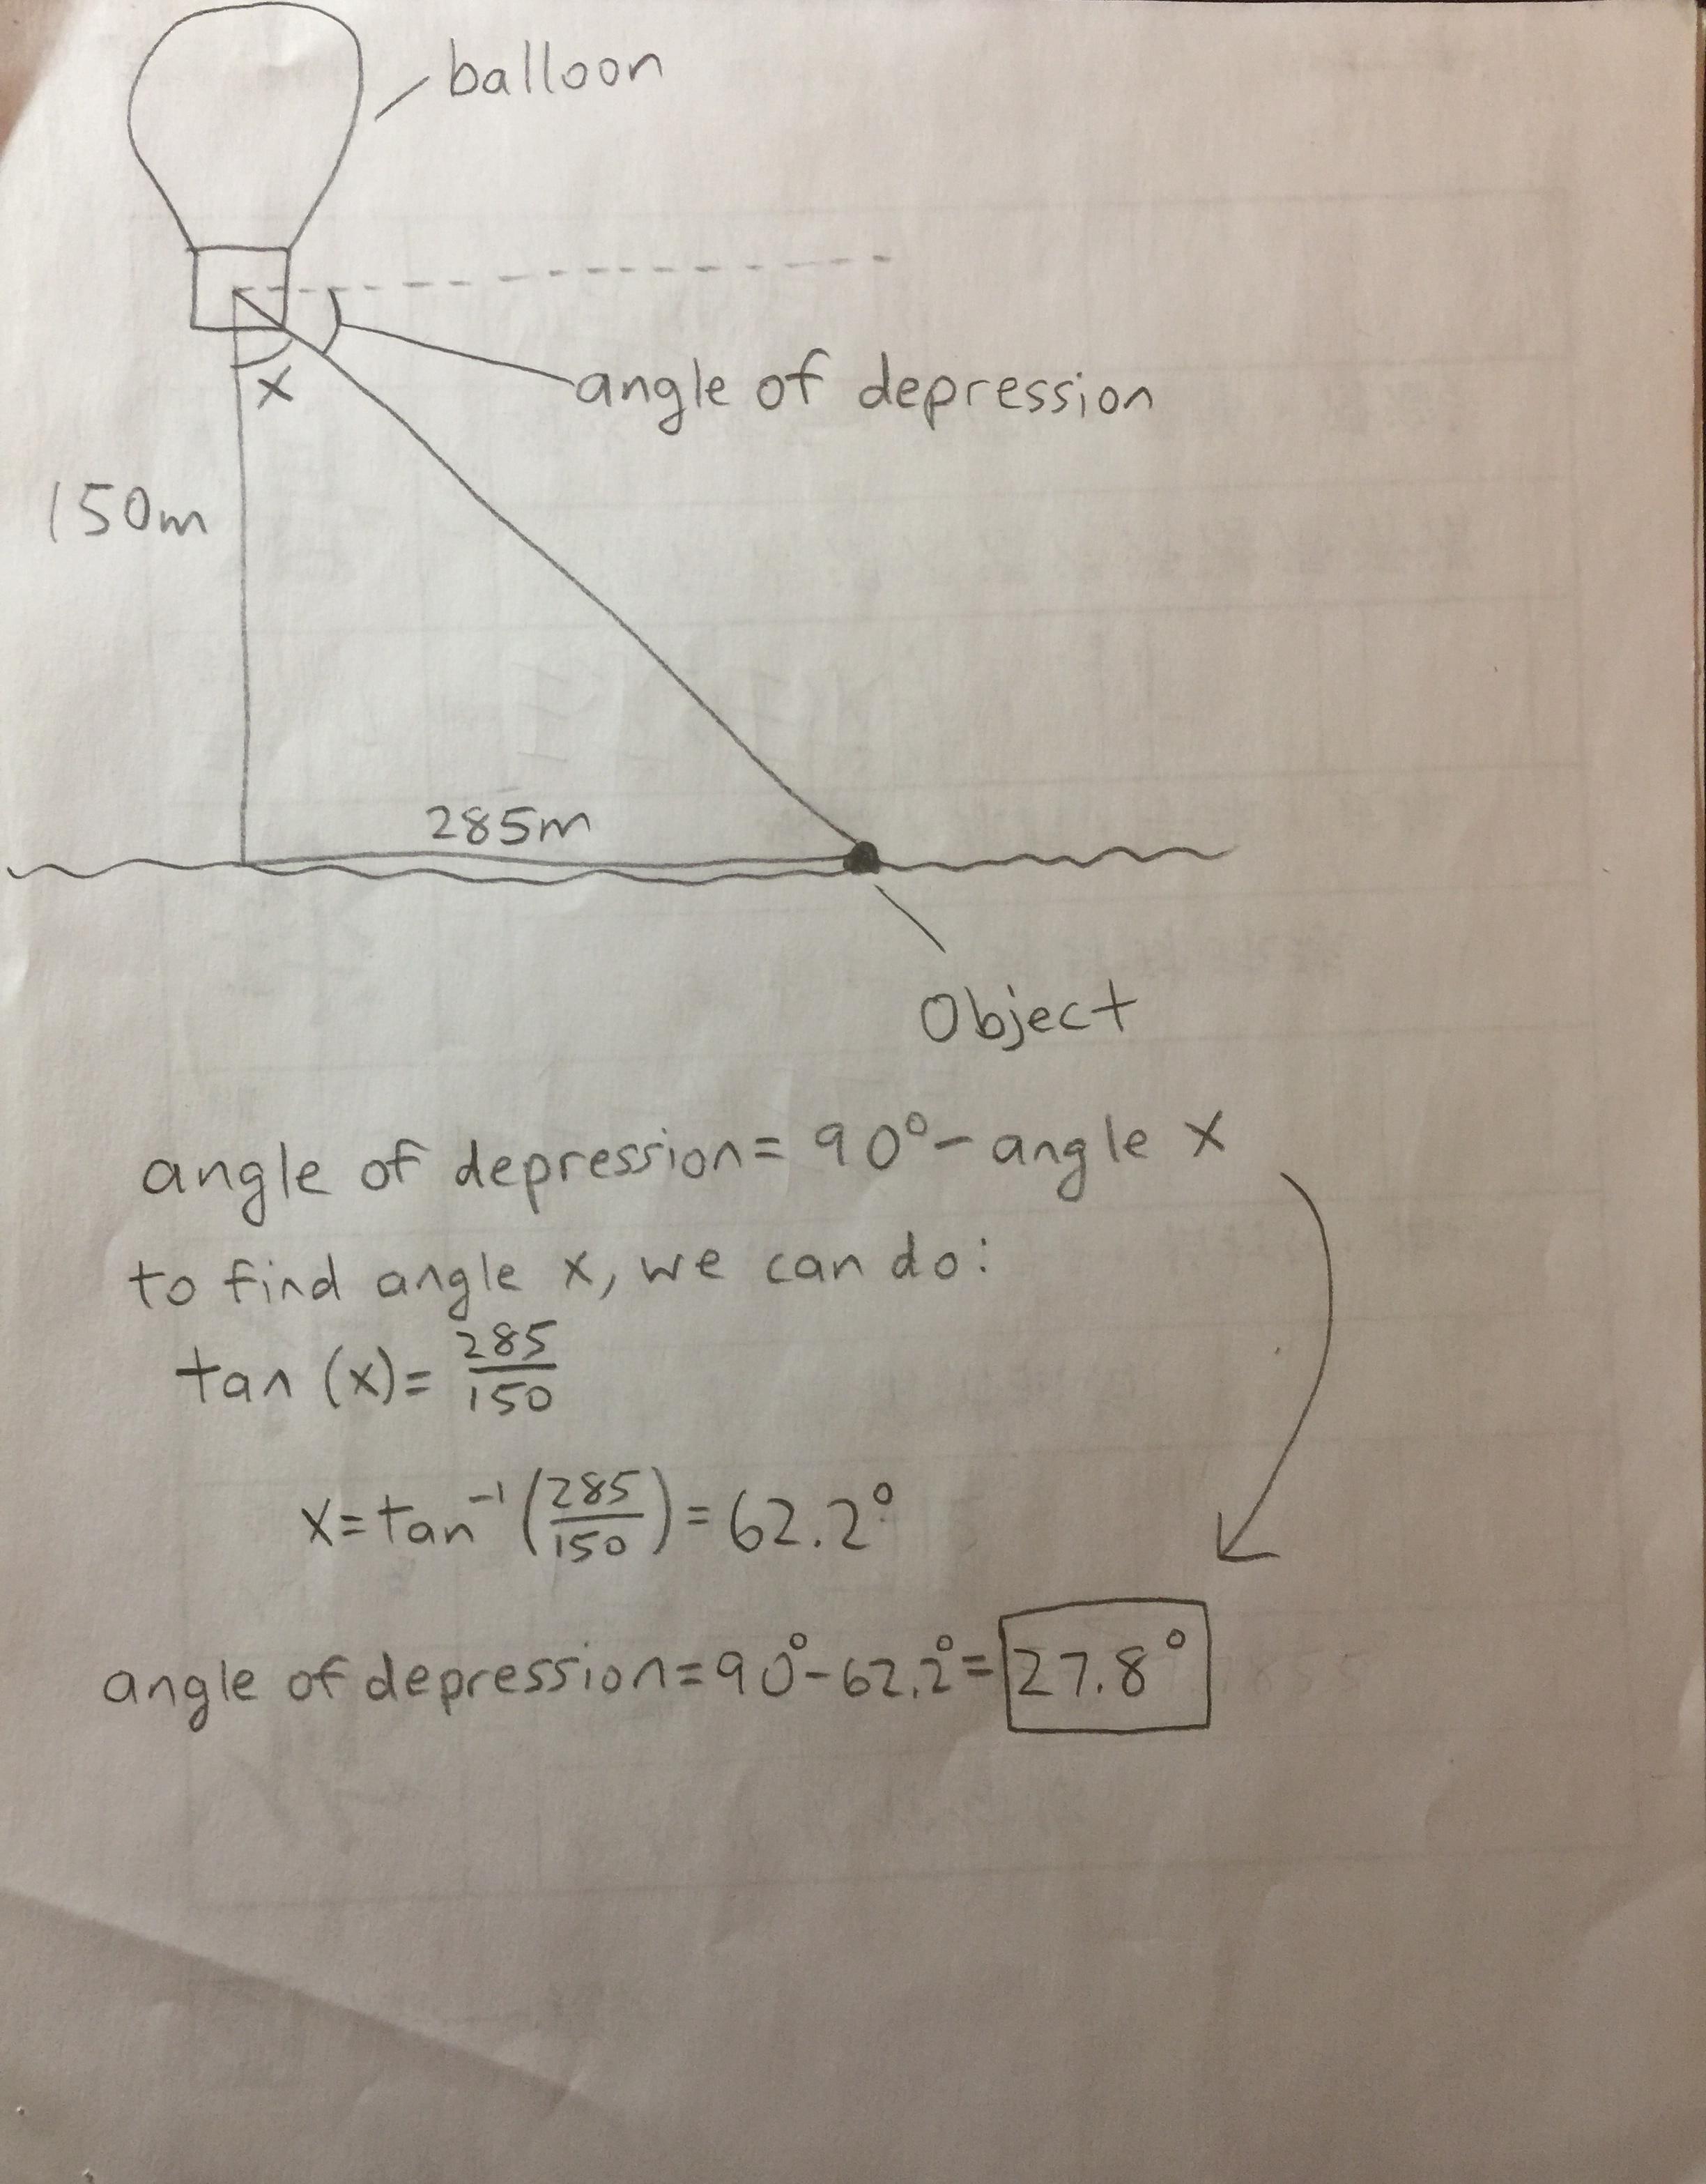 balloon
angle of depression
x
150m
285m
Object
angle of depression = 90° - angle x
to find angle x, we can do:
tan (x) = 285/150
x = tan⁻¹ (285/150) = 62.2°
angle of depression = 90° - 62.2° = 27.8°